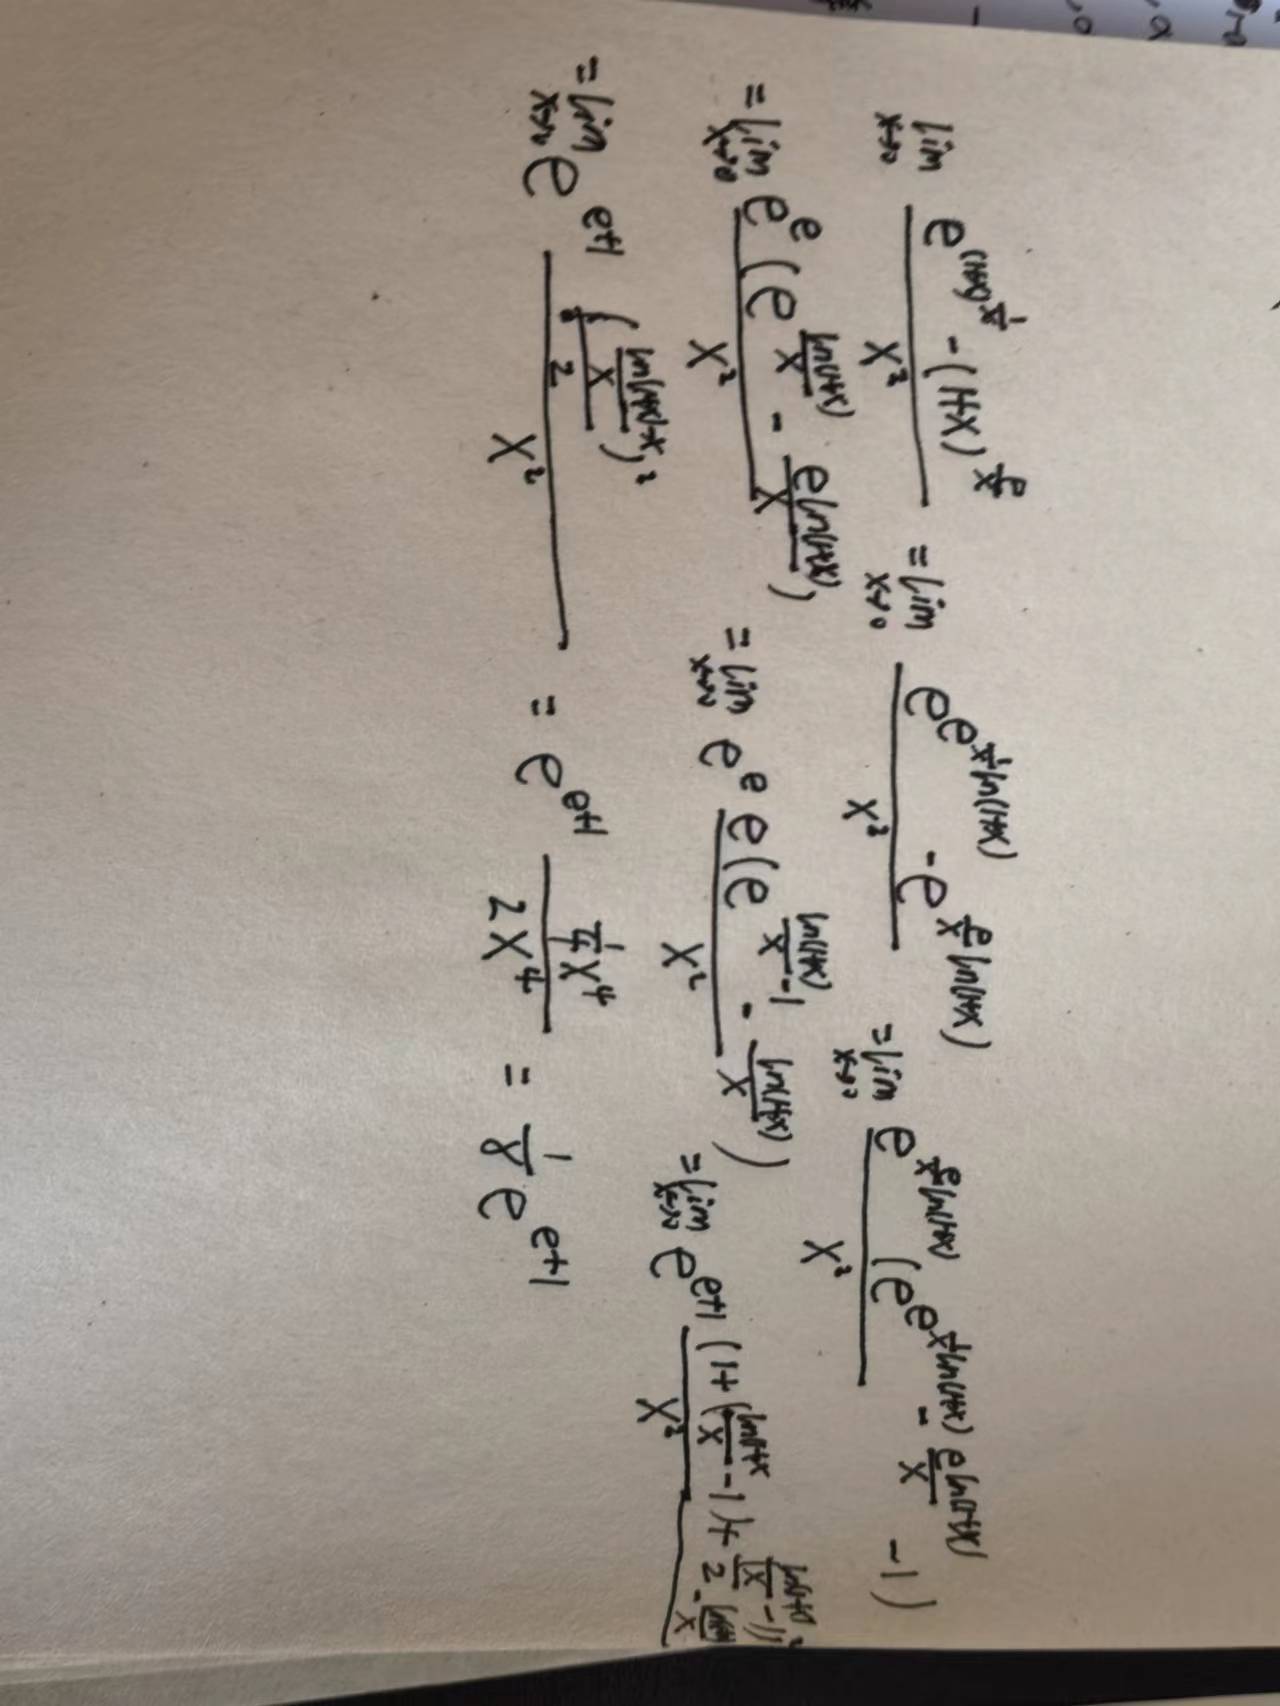 lim x→0 (e^((1+x)^(1/x)) - (1+x)^(e/x)) / x² = lim x→0 (e^(e^(1/x ln(1+x))) - e^(e/x ln(1+x))) / x² = lim x→0 e^(e/x ln(1+x)) (e^(e^(1/x ln(1+x)) - e ln(1+x)/x) - 1) / x²
= lim x→0 e^e (e^(ln(1+x)/x) - e ln(1+x)/x) / x² = lim x→0 e^e e(e^(ln(1+x)/x - 1) - ln(1+x)/x) / x² = lim x→0 e^(e+1) (1+(ln(1+x)/x - 1)+ (ln(1+x)/x - 1)²/2 - ln(1+x)/x) / x²
= lim x→0 e^(e+1) ((ln(1+x)-x)/x)²/2 / x² = e^(e+1) (1/4 x⁴)/(2x⁴) = 1/8 e^(e+1)